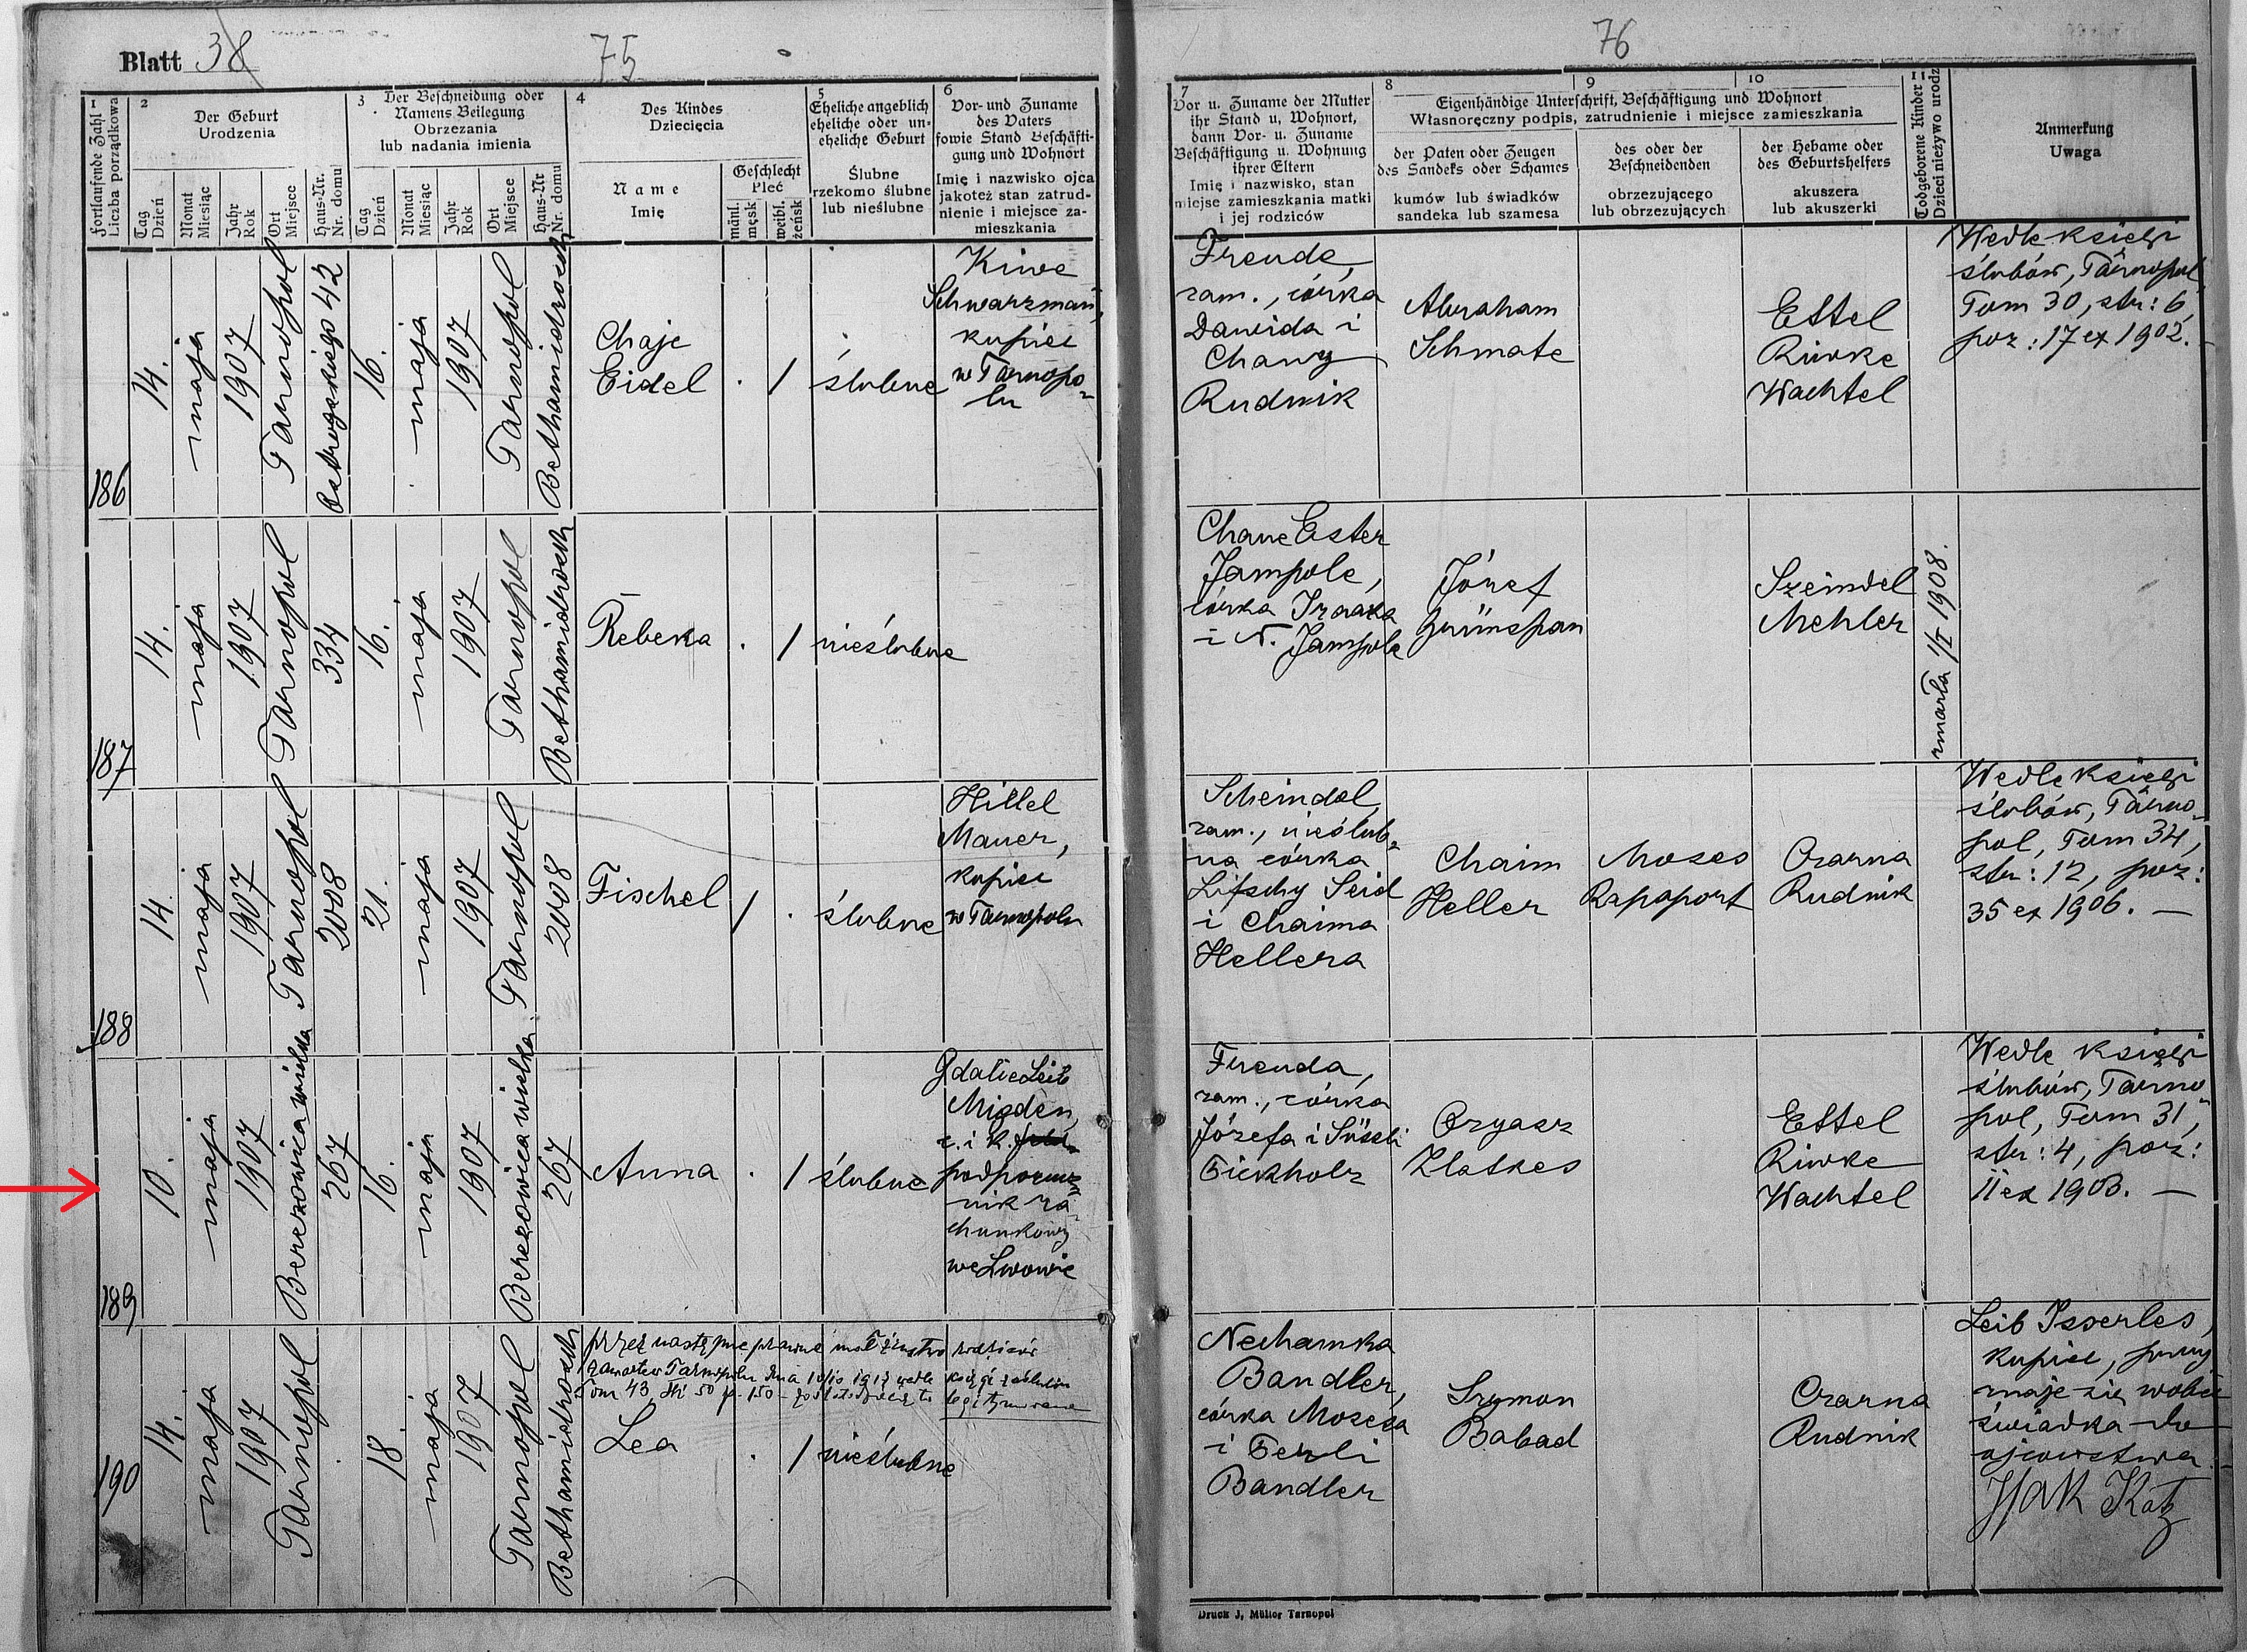 Blatt 38
75
1
Fortlaufende Zahl
Liczba porządkowa
2
Der Geburt
Urodzenia
Tag
Dzień
Monat
Miesiąc
Jahr
Rok
Ort
Miejsce
Haus-Nr.
Nr. domu
3
Der Beschneidung oder
Namens Beilegung
Obrzezania
lub nadania imienia
Tag
Dzień
Monat
Miesiąc
Jahr
Rok
Ort
Miejsce
Haus-Nr
Nr. domu
4
Des Kindes
Dziecięcia
Name
Imię
Geschlecht
Płeć
männl.
męsk
weibl.
żeńsk
5
Eheliche angeblich
eheliche oder un-
eheliche Geburt
Ślubne
rzekomo ślubne
lub nieślubne
6
Vor- und Zuname
des Vaters
sowie Stand Beschäfti-
gung und Wohnort
Imię i nazwisko ojca
jakoteż stan zatrud-
nienie i miejsce za-
mieszkania
186
14.
maja
1907
Tarnopol
16.
maja
1907
Tarnopol
Bethamidrosch
Chaje
Eidel
. /
ślubne
Kiwe
Schwarzman,
kupiec
w Tarnopo-
lu
187
14.
maja
1907
Tarnopol
334
16.
maja
1907
Tarnopol
Bethamidrosch
Rebeka
. /
nieślubne
188
14.
maja
1907
Tarnopol
2008
21.
maja
1907
Tarnopol
2008
Fischel
/ .
ślubne
Hillel
Mauer,
kupiec
w Tarnopolu
189
10.
maja
1907
Berezowica wielka
267
16.
maja
1907
Berezowica wielka
267
Anna
. /
ślubne
Gdalie Leib
Migden,
c. i k.
podporucz=
nik ra-
chunkowy
we Lwowie
190
14.
maja
1907
Tarnopol
.
18.
maja
1907
Tarnopol
Bethamidrosch
przez następne prawne małżeństwo rodziców
zawarte w Tarnopolu dnia
Tom 43
Lea
. /
nieślubne
76
7
Vor u. Zuname der Mutter
ihr Stand u, Wohnort,
dann Vor- u. Zuname
Beschäftigung u. Wohnung
ihrer Eltern
Imię i nazwisko, stan
miejsce zamieszkania matki
i jej rodziców
8
9
10
Eigenhändige Unterschrift, Beschäftigung und Wohnort
Własnoręczny podpis, zatrudnienie i miejsce zamieszkania
der Paten oder Zeugen
des Sandeks oder Schames
kumów lub świadków
sandeka lub szamesa
des oder der
Beschneidenden
obrzezującego
lub obrzezujących
der Hebame oder
des Geburtshelfers
akuszera
lub akuszerki
11
Todgeborene Kinder
Dzieci nieżywo urodz
Anmerkung
Uwaga
Freude,
zam., córka
Dawida i
Chany
Rudnik
Abraham
Schmate
Ettel
Riwke
Wachtel
Wedle księgi
ślubów, Tarnopol,
Tom 30, str: 6,
poz: 17 ex 1902. –
Chane Ester
Jampole,
córka Izaaka
i N. Jampole
Józef
Grünspan
Szeindel
Mehler
zmarła 1/I 1908.
Scheindel,
zam., nieślub=
na córka
Lifschy Seid
i Chaima
Hellera
Chaim
Heller
Moses
Rapaport
Czarna
Rudnik
Wedle księgi
ślubów, Tarno-
pol, Tom 34,
str: 12, poz:
35 ex 1906. —
Freuda,
zam., córka
Józefa i Süssli
Eickholz
Ozyasz
Zlatkes
Ettel
Riwke
Wachtel
Wedle księgi
ślubów, Tarno-
pol, Tom 31,
str: 4, poz:
11 ex 1903. —
Nechamka
Bandler,
córka Mosesa
i Perli
Bandler
Szymon
Babad
Czarna
Rudnik
Leib Isserles,
kupiec, przyz
naje się wobec
świadka do
ojcowstwa. –
Isak Katz
Druck J, Müller Tarnopol